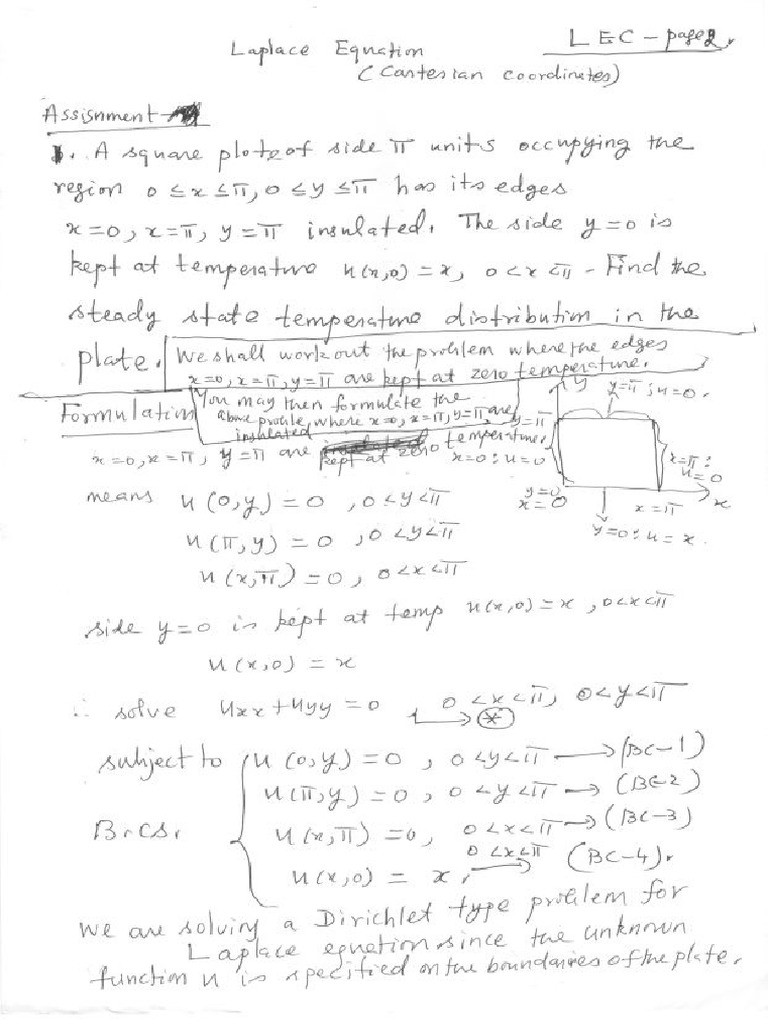 LEC - page 2.
Laplace Equation
(Cartesian coordinates)
Assignment
1. A square plate of side π units occupying the
region 0 ≤ x ≤ π, 0 ≤ y ≤ π has its edges
x = 0, x = π, y = π insulated. The side y = 0 is
kept at temperature u(x,0) = x, 0 < x < π - Find the
steady state temperature distribution in the
plate. We shall work out the problem where the edges
x = 0, x = π, y = π are kept at zero temperature.
Formulation You may then formulate the
above problem where x = 0, x = π, y = π are
insulated
x = 0, x = π, y = π are kept at zero temperature
y
y = π : u = 0.
y = π
x = 0 : u = 0
x = π :
u = 0
y = 0
x = 0
x = π
x
y = 0 : u = x.
means u(0,y) = 0 , 0 < y < π
u(π,y) = 0 , 0 < y < π
u(x,π) = 0, 0 < x < π
side y = 0 is kept at temp u(x,0) = x , 0 < x < π
u(x,0) = x
∴ solve uxx + uyy = 0 0 < x < π, 0 < y < π
→ (*)
subject to u(0,y) = 0 , 0 < y < π → (BC-1)
u(π,y) = 0, 0 < y < π → (BC-2)
B.Cs. u(x,π) = 0, 0 < x < π → (BC-3)
u(x,0) = x, 0 < x < π → (BC-4).
We are solving a Dirichlet type problem for
Laplace equation since the unknown
function u is specified on the boundaries of the plate.